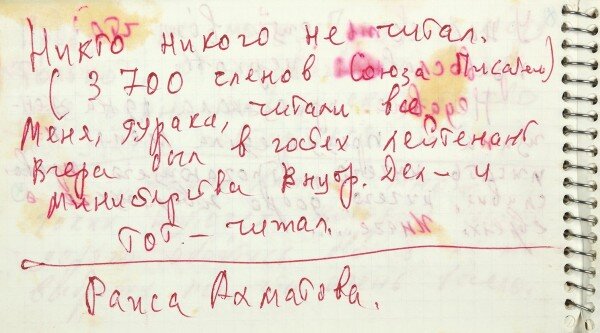 Никто никого не читал.
(3 700 членов Союза Писател)
Меня, дурака, читали все
Вчера был в гостях лейтенант
министерства Внутр. Дел – и
тот – читал.
Раиса Ахматова.